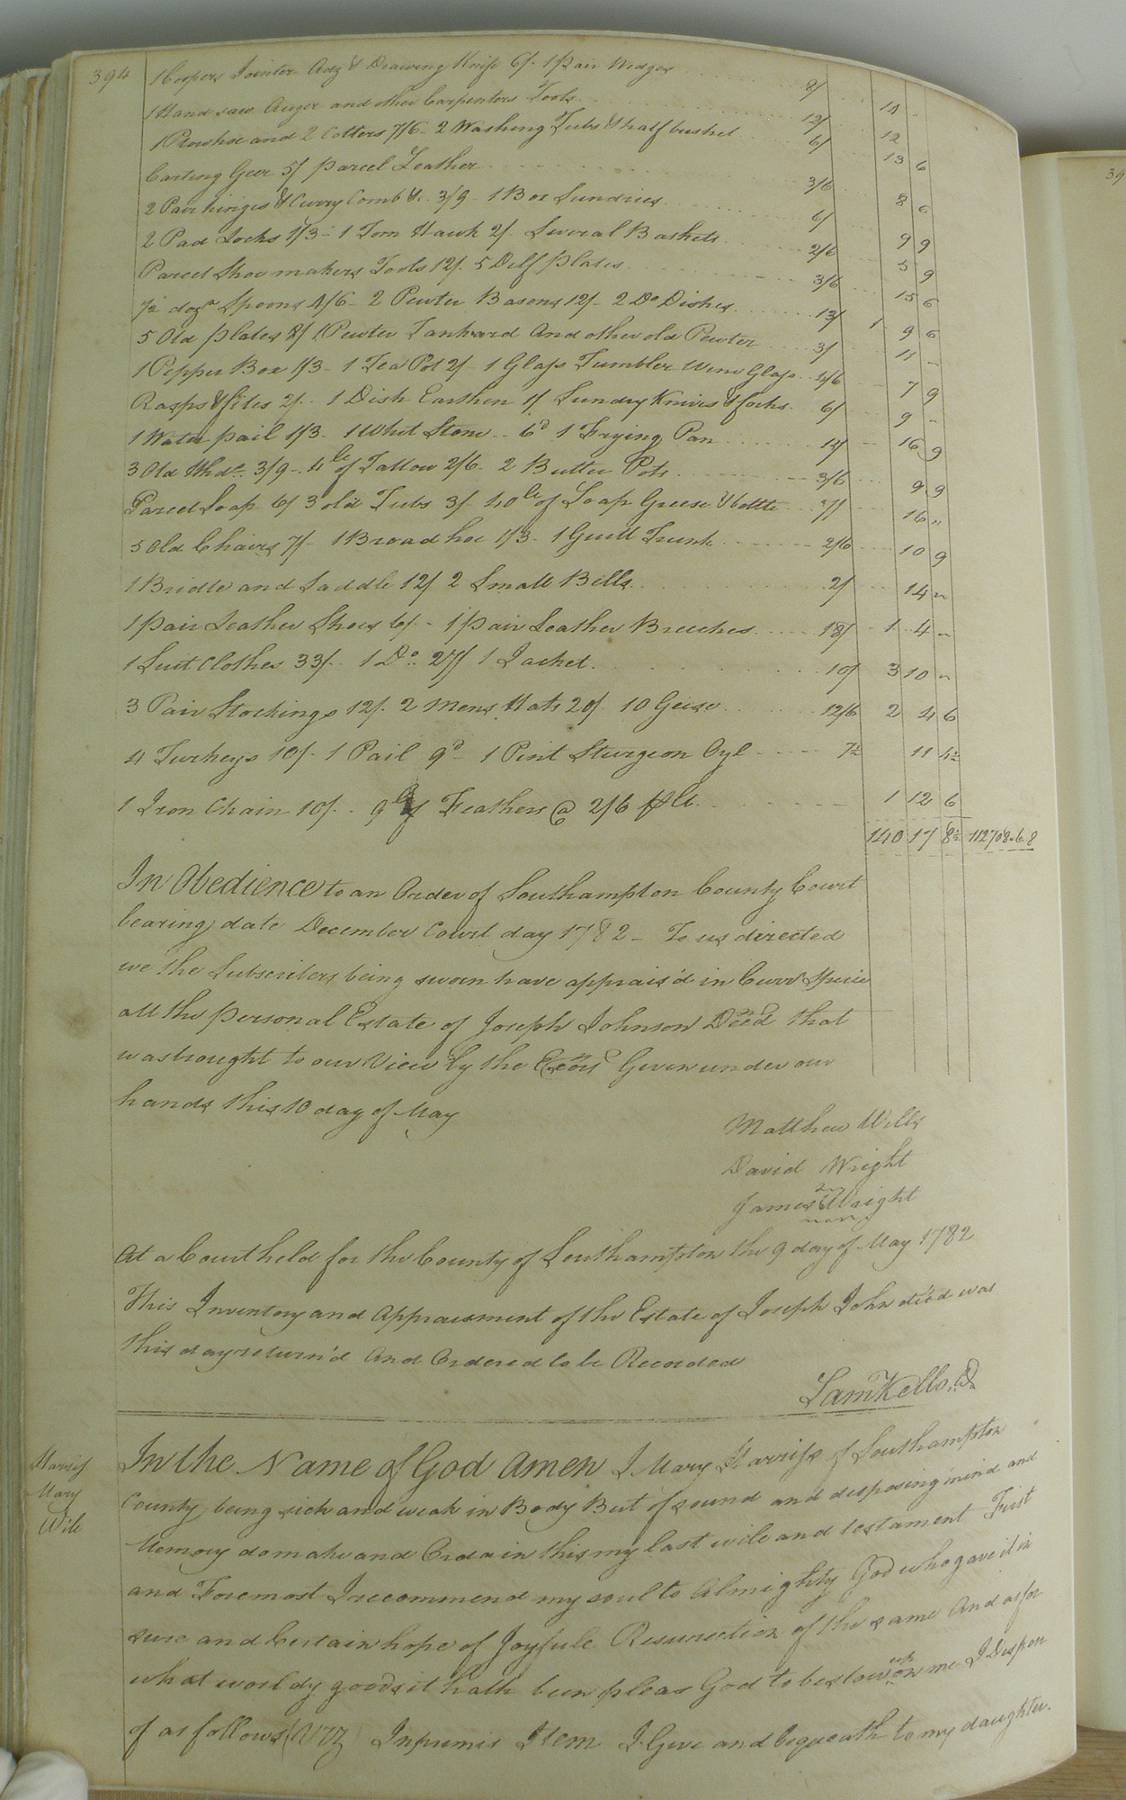 394
1 Coopers Jointer Adz & Drawing Knife 6/. 1 pair Wedges 8/ 14 -
1 Hand saw Auger and other Carpenters Tools 12/ 12
1 Plowhoe and 2 Colters 7/6 - 2 Washing Tubs & half bushel 6/ 13 6
Carting Geer 5/ parcel Leather 3/6 8 6
2 Pair hinges & Curry Comb &c. 3/9 - 1 Box Sundries 6/ 9 9
2 Pad Locks 3/3 - 1 Tom Hawk 2/ Several Baskets 2/6 5 9
Parcel Shoemakers Tools 12/. 5 Delf plates 3/6 15 6
½ dozn Spoons 4/6 - 2 Pewter Basons 12/- 2 Do Dishes 13/ 1 9 6
5 Old plates 8/ 1 Pewter Tankard And other old Pewter 3/ 11 -
1 Pepper Box 1/3 - 1 Tea Pot 2/ - 1 Glass Tumbler Wine Glass 4/6 7 9
Rasps & files 2/. 1 Dish Earthen 1/ Sundry Knives & forks 6/ 9 -
1 Water pail 1/3. 1 Whit Stone - 6d 1 Frying Pan 14/ 16 9
3 Old Hhds. 3/9 - 4 lb of Tallow 2/6. 2 Butter Pots 3/6 9 9
Parcel Soap 6/ 3 old Tubs 3/ 40 lb of Soap Greese & bottle 7/ 16 "
5 Old Chairs 7/ - 1 Broad hoe 1/3 - 1 Guilt Trunk 2/6 10 9
1 Bridle and Saddle 12/ 2 Small Bells 2/ 14 "
1 pair Leather Shoes 6/ - 1 pair Leather Breeches 18/ 1 4 "
1 Suit Clothes 33/. 1 Do. 27/ 1 Jacket 10/ 3 10 "
3 Pair Stockings 12/. 2 Mens Hats 20/ 10 Geese 12/6 2 4 6
4 Turkeys 10/. 1 Pail 9d - 1 Pint Sturgeon Oyl 7½ 11 4½
1 Iron Chain 10/. 9 lb of Feathers @ 2/6 p lb 1 12 6
140 17 8½ 112708.6.8
In Obedience to an Order of Southampton County Court
bearing date December Court day 1782 - To us directed
we the Subscribers being sworn have apprais'd in Curr Specie
all the personal Estate of Joseph Johnson Deced that
was brought to our View by the Exors Given under our
hands this 10 day of May
Matthew Wills
David Wright
James Wright
At a Court held for the County of Southampton the 9 day of May 1782
This Inventory and Appraisment of the Estate of Joseph John dec'd was
this day return'd And Ordered to be Recorded
Saml Kello. C.
Harriss
Mary
Will
In the Name of God Amen I Mary Harriss of Southampton
County being sick and weak in Body But of sound and disposing mind and
Memory do make and Ordain this my last will and testament First
and Foremost I recommend my soul to Almighty God who gave it in
sure and Certain hope of Joyfull Resurrection of the same And as for
what worldy goods it hath been pleas God to bestow upon me I Dispon
of as follows (Vizz) Inpremis Item I Give and bequeath to my daughter.